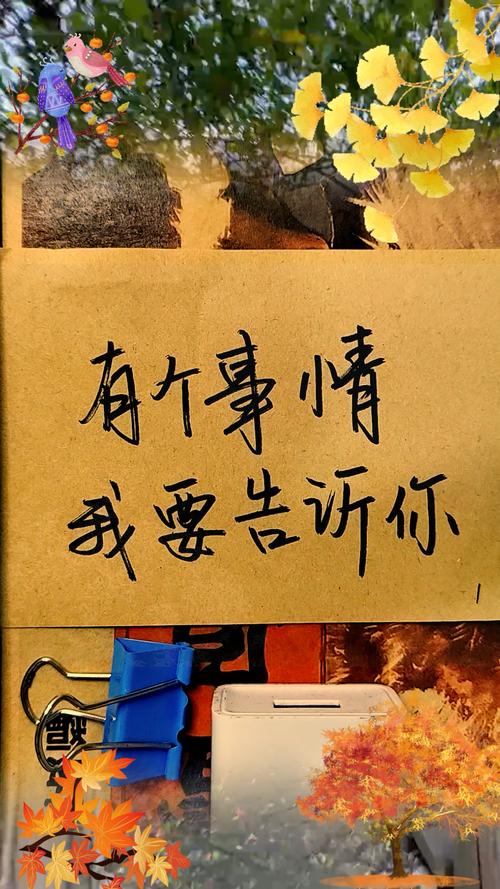 有个事情
我要告诉你